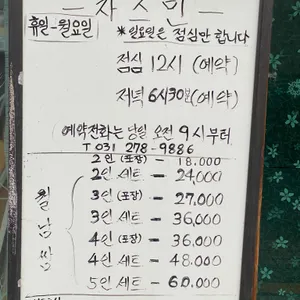 - 자스민 -
휴일-월요일
*일요일은 점심만 합니다
점심 12시 (예약)
저녁 6시30분(예약)
예약전화는 당일 오전 9시부터
T 031 278-9886
월남쌈
2인 (포장) - 18.000
2인 세트 - 24,000
3인 (포장) - 27,000
3인 세트 - 36,000
4인 (포장) - 36.000
4인 세트 - 48.000
5인 세트 - 60.000